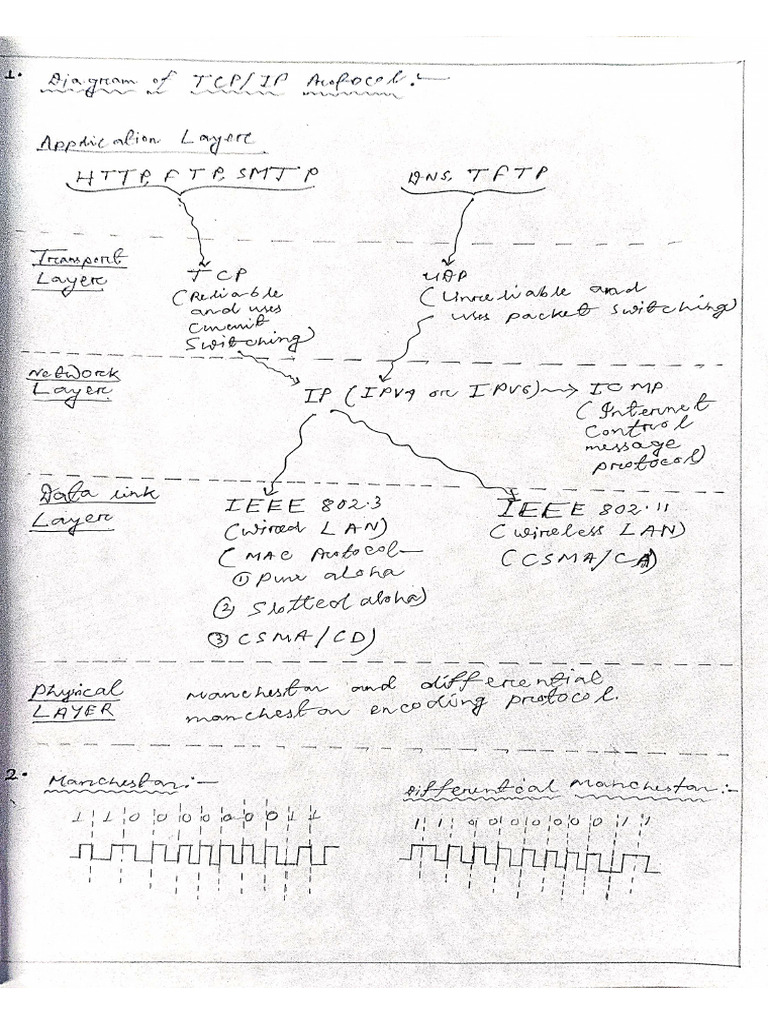 1. Diagram of TCP/IP Protocol:-
Application Layer
HTTP, FTP, SMTP DNS, TFTP
Transport Layer
TCP
(Reliable and uses circuit switching)
UDP
(Unreliable and uses packet switching)
Network Layer
IP (IPV4 or IPV6) → ICMP
(Internet control message protocol)
Data link Layer
IEEE 802.3
(Wired LAN)
(MAC Protocol-
① Pure aloha
② Slotted aloha)
③ CSMA/CD)
IEEE 802.11
(Wireless LAN)
(CSMA/CA)
Physical LAYER
Manchester and differential
manchester encoding protocol.
2. Manchester:-
1 1 0 0 0 0 0 0 1 1
Differential Manchester:-
1 1 0 0 0 0 0 0 1 1